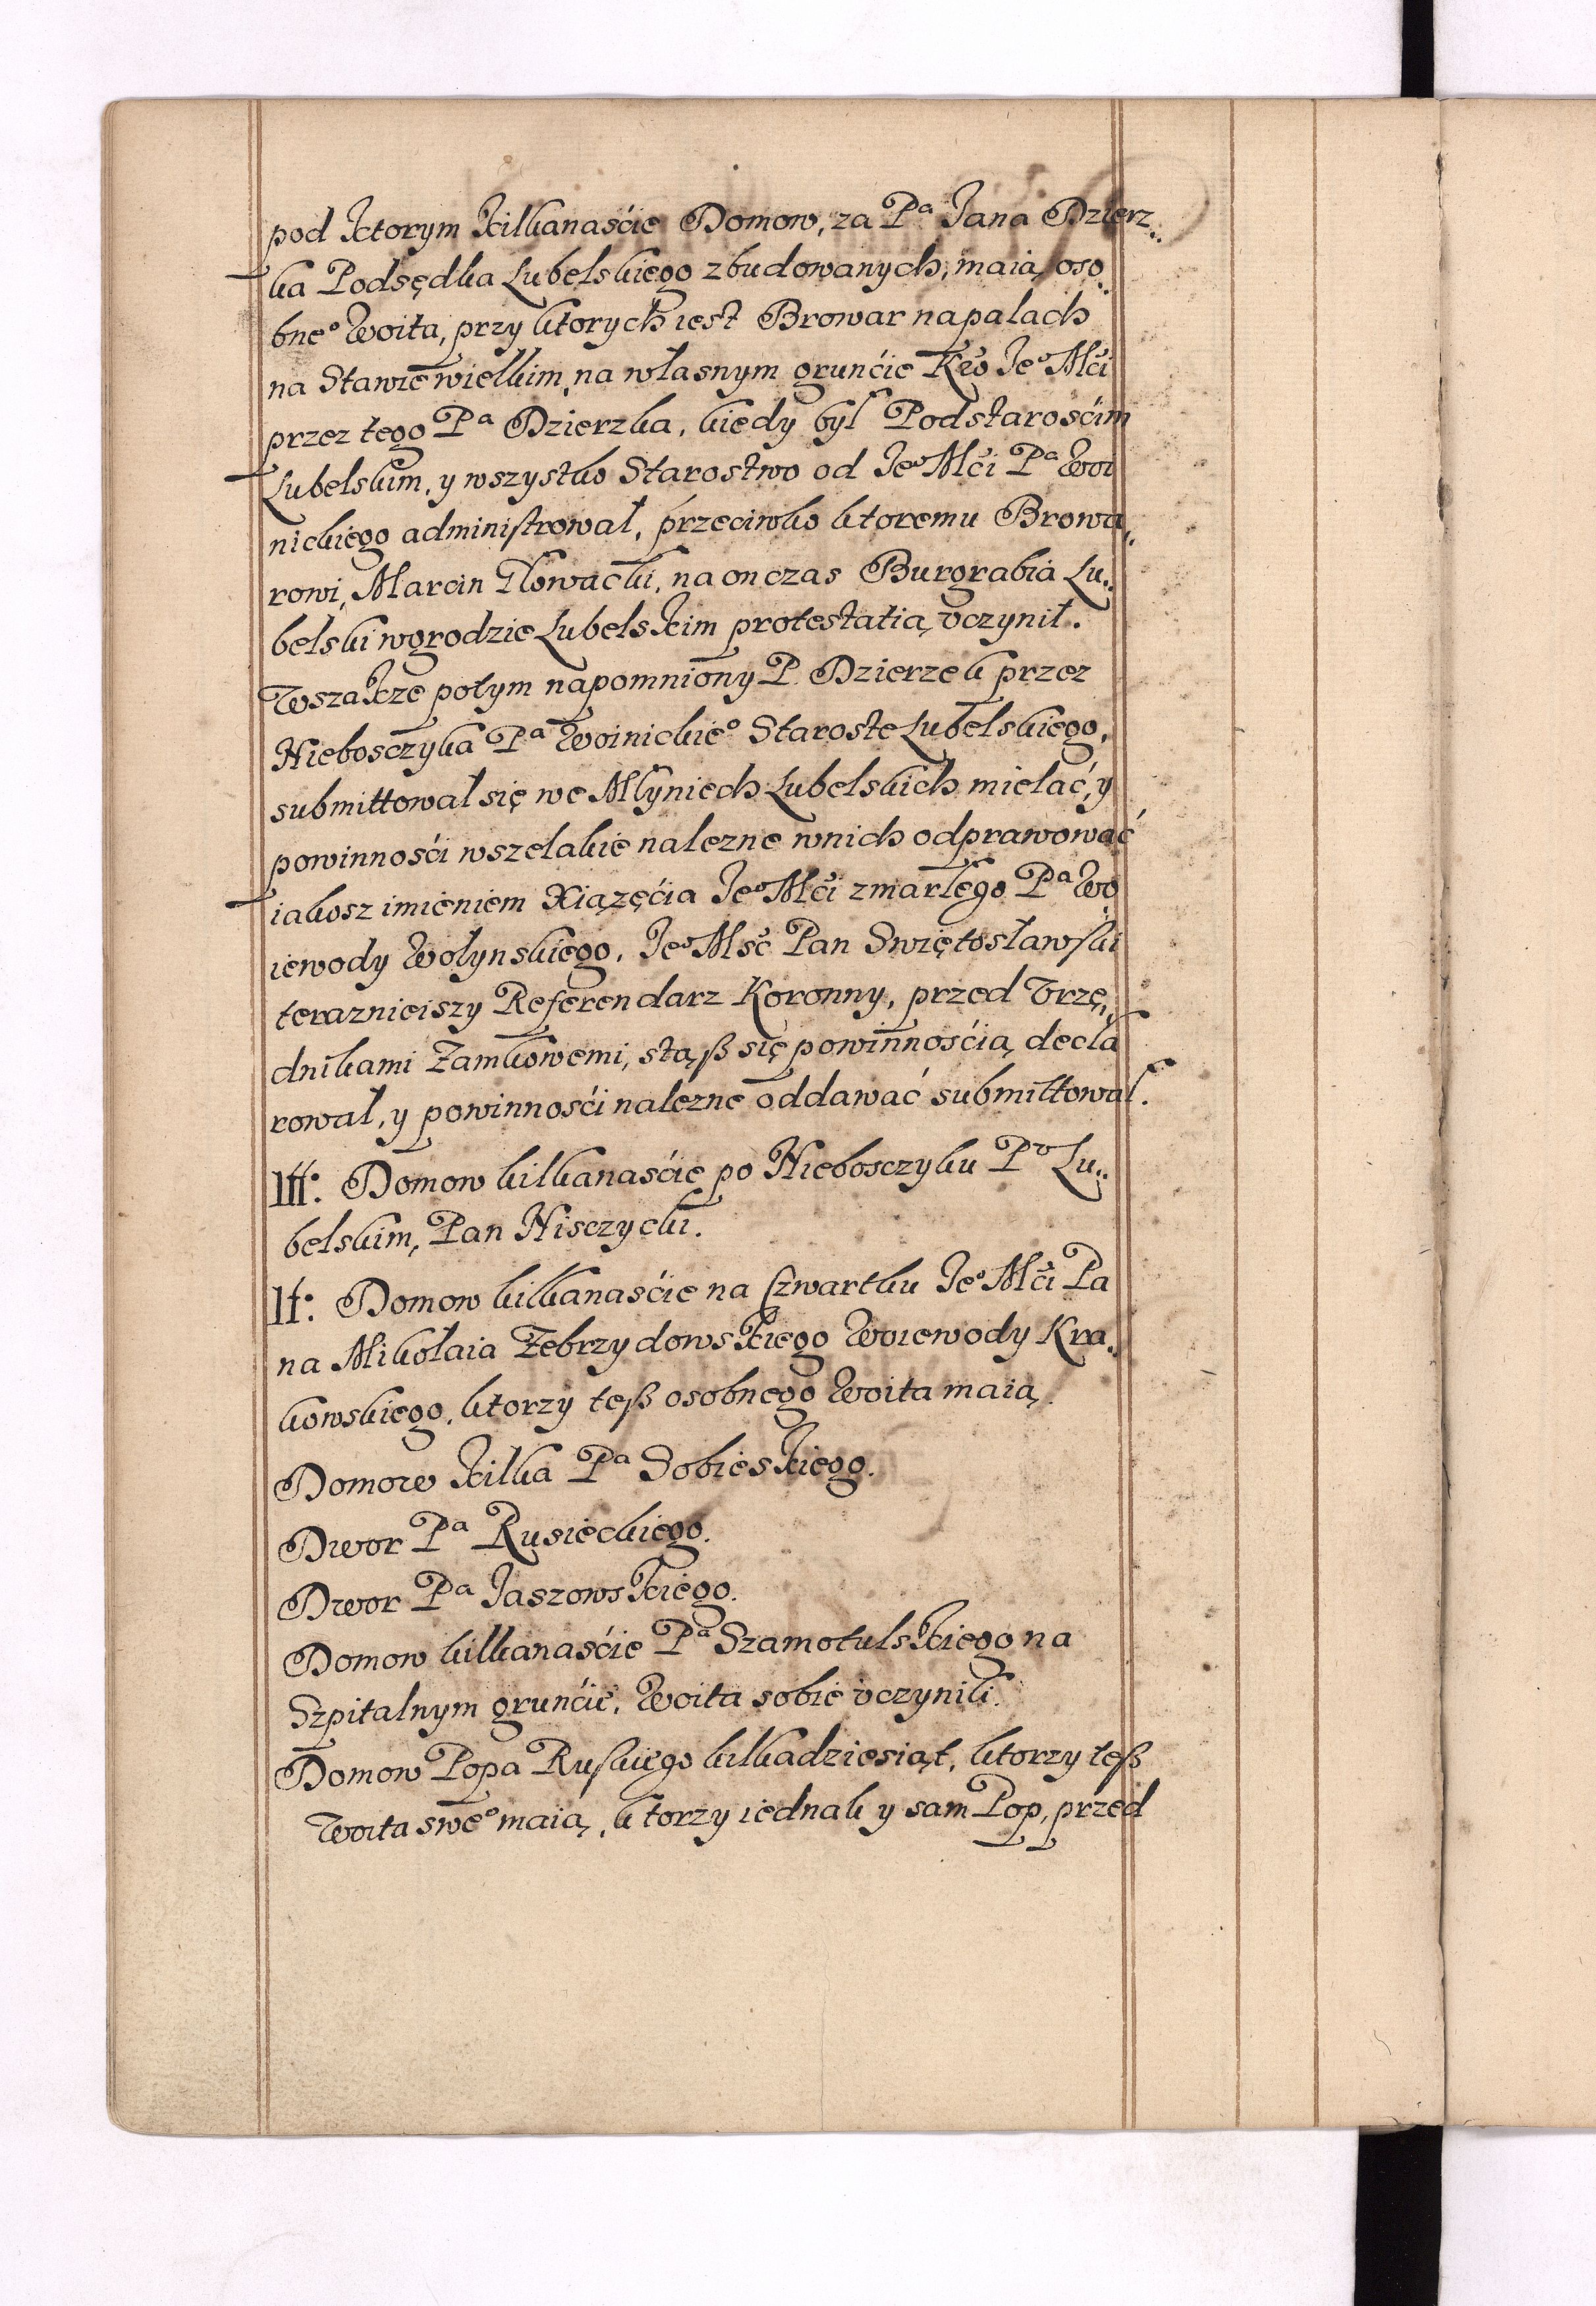 pod ktorym kilkanaśćie Domow, za Pᵃ Jana Dzierz..
ka Podsędka Lubelskiego zbudowanych, maią oso..
bneº Woita, przy ktorych iest Browar na palach
na Stawie wielkim, na własnym grunćie Kró Jeº Mći
przez tego Pᵃ Dzierzka, kiedy był Podstarośćim
Lubelskim, y wszystko Starostwo od Jeº Mći Pᵃ Woi
nickiego administrował, przeciwko ktoremu Browa..
rowi, Marcin Nowacki, na on czas Burgrabia Lu..
belski w grodzie Lubelskim protestatią vczynił.
Wszakze potym napomniony P. Dzierzek przez
Niebosczyka Pᵃ Woinickieº Staroste Lubelskiego,
submittował się we Młyniech Lubelskich mielać, y
powinnośći wszelakie nalezne w nich odprawować
iakosz imieniem Xiązęćia Jeº Mći zmarłego Pᵃ Wo..
iewody Wołynskiego, Jeº Mść Pan Swiętosławski
teraznieiszy Referendarz Koronny, przed Vrzę..
dnikami Zamkowemi, stąß się powinnośćią decla
rował, y powinnośći nalezne oddawać submittował.
Itt: Domow kilkanaśćie po Niebosczyku Pᵛ Lu..
belskim, Pan Hisczycki.
It: Domow kilkanaśćie na Czwartku Jeº Mći Pa
na Mikołaia Zebrzydowskiego Woiewody Kra..
kowskiego, ktorzy teß osobnego Woita maią.
Domow kilka Pᵃ Sobieskiego.
Dwor Pᵃ Rusieckiego.
Dwor Pᵃ Jaszowskiego.
Domow kilkanaśćie Pᵃ Szamotulskiego na
Szpitalnym grunćie, Woita sobie vczynili.
Domow Popa Ruskiego kilkadziesiąt, ktorzy teß
Woita sweº maią, ktorzy iednak y sam Pop, przed